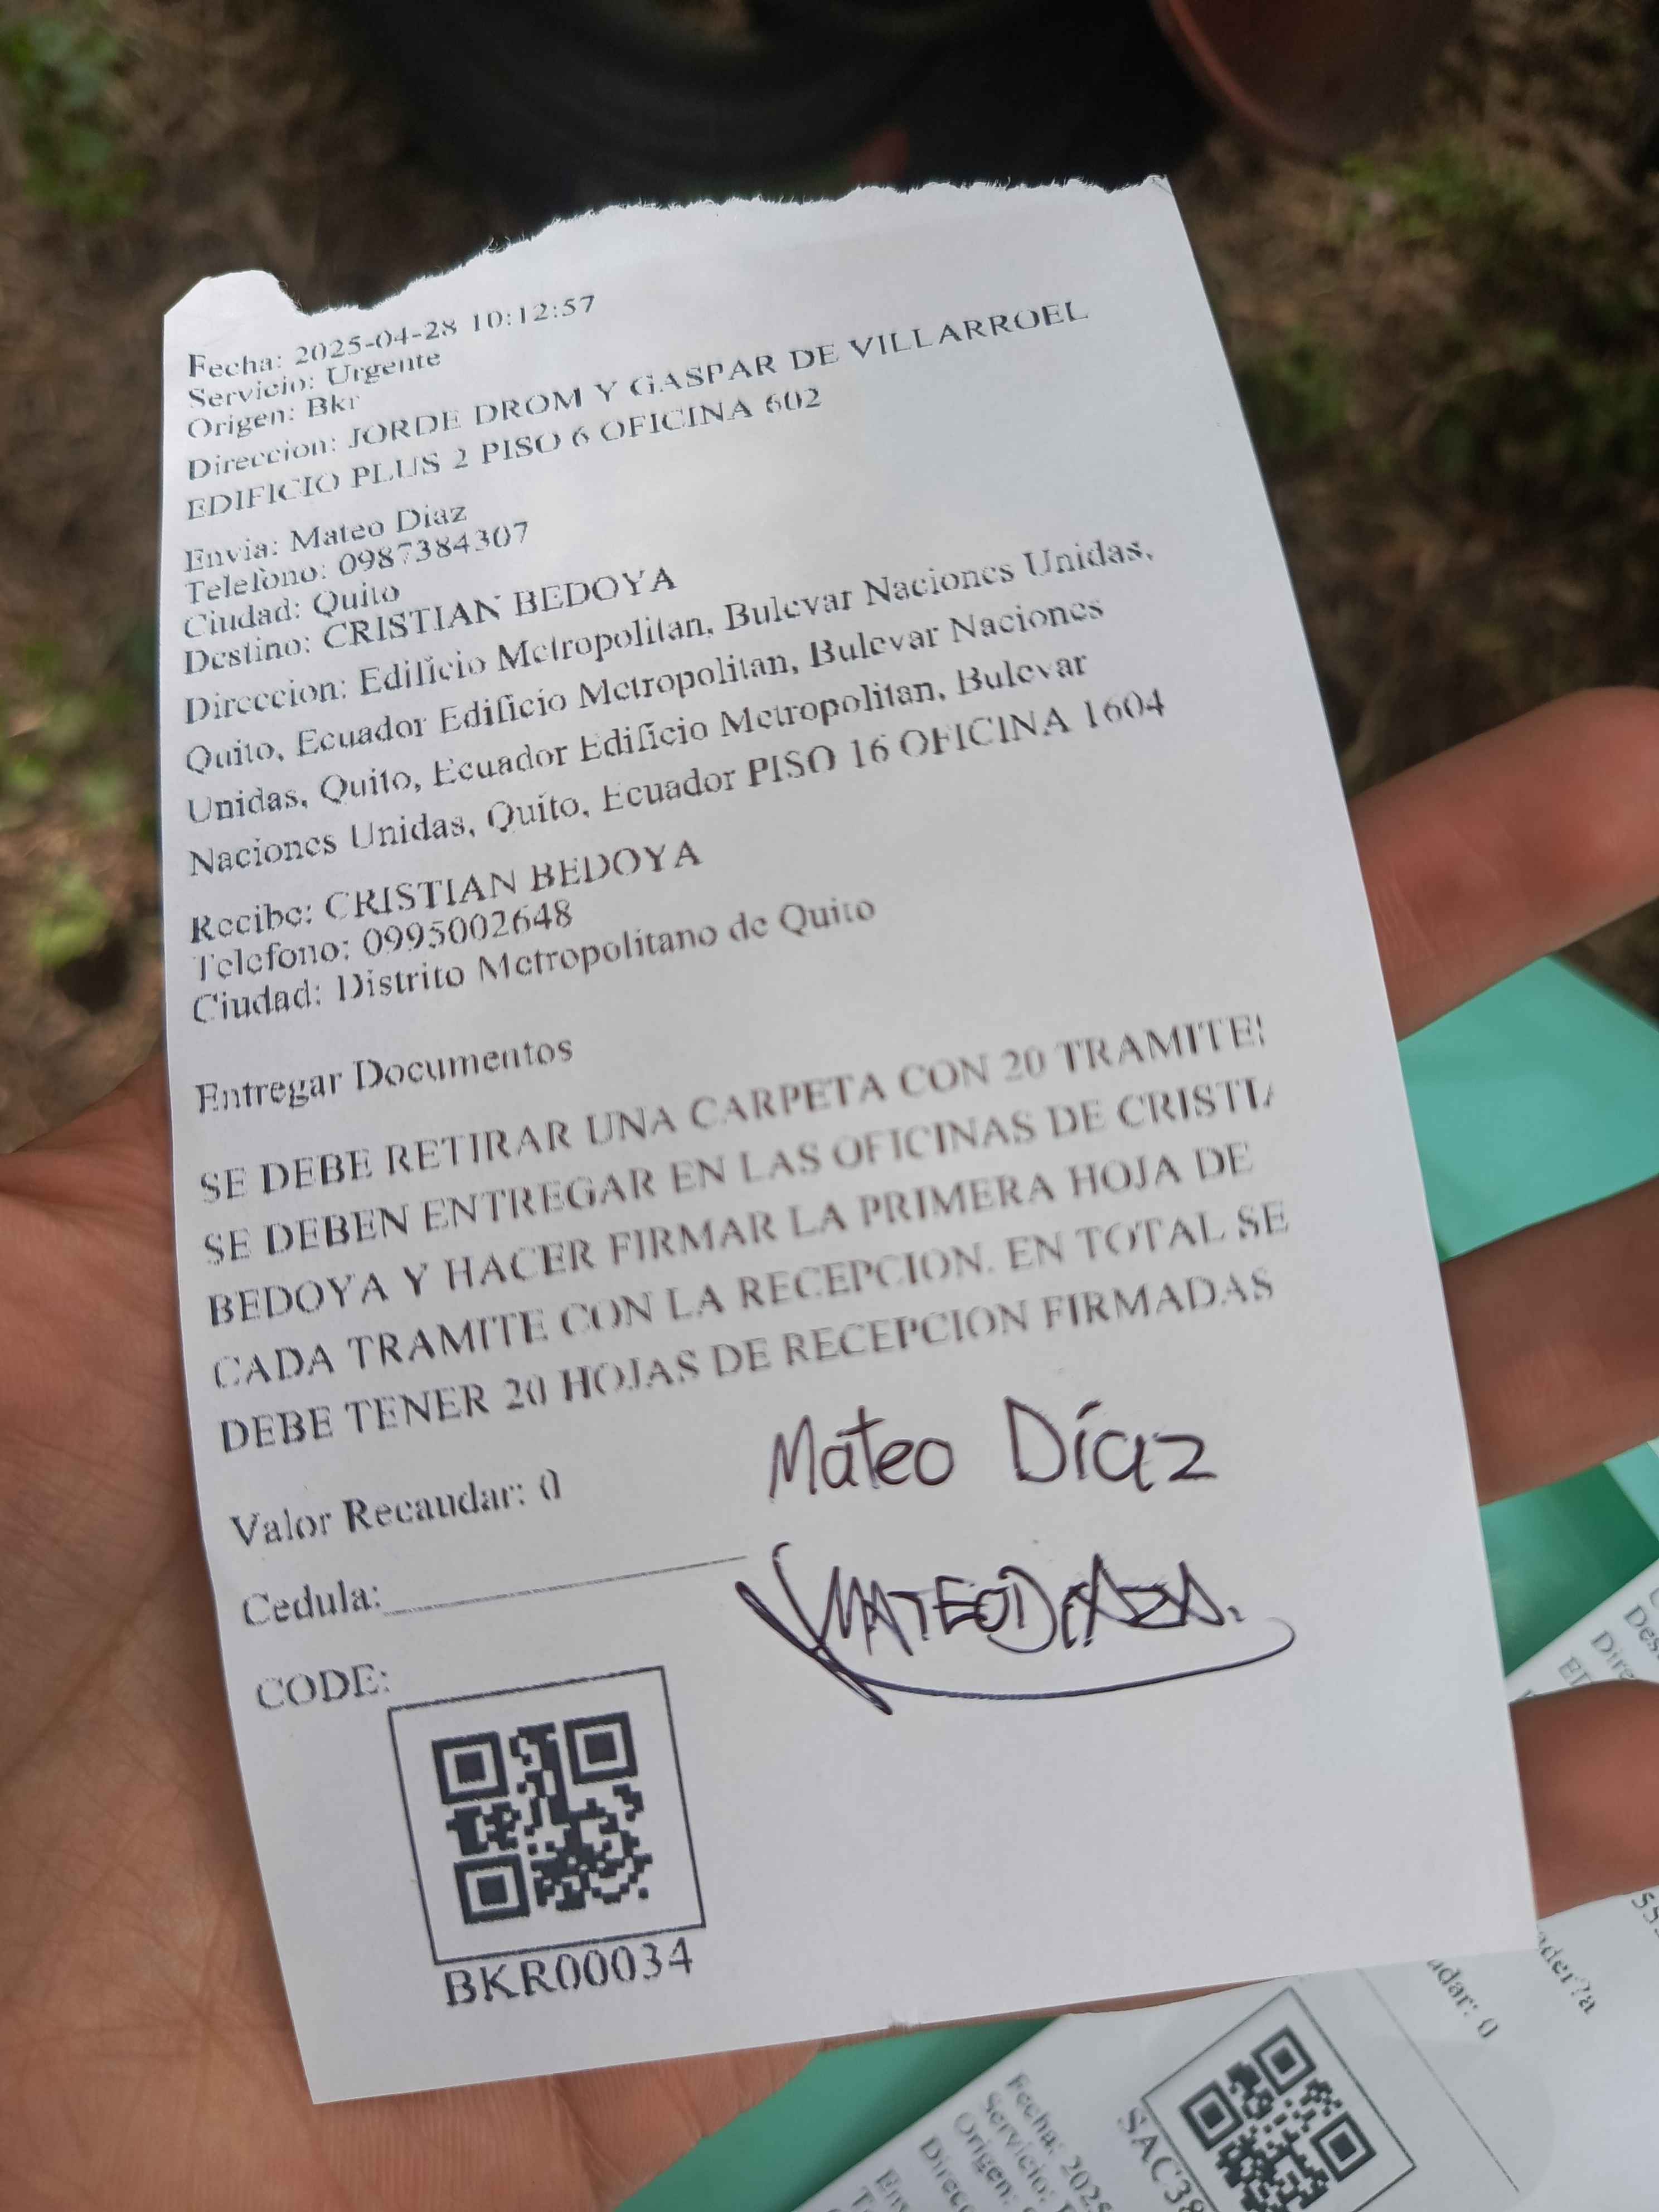 Fecha: 2025-04-28 10:12:57
Servicio: Urgente
Origen: Bkr
Direccion: JORDE DROM Y GASPAR DE VILLARROEL
EDIFICIO PLUS 2 PISO 6 OFICINA 602
Envia: Mateo Diaz
Telefono: 0987384307
Ciudad: Quito
Destino: CRISTIAN BEDOYA
Direccion: Edificio Metropolitan, Bulevar Naciones Unidas,
Quito, Ecuador Edificio Metropolitan, Bulevar Naciones
Unidas, Quito, Ecuador Edificio Metropolitan, Bulevar
Naciones Unidas, Quito, Ecuador PISO 16 OFICINA 1604
Recibe: CRISTIAN BEDOYA
Telefono: 0995002648
Ciudad: Distrito Metropolitano de Quito
Entregar Documentos
SE DEBE RETIRAR UNA CARPETA CON 20 TRAMITE
SE DEBEN ENTREGAR EN LAS OFICINAS DE CRISTI
BEDOYA Y HACER FIRMAR LA PRIMERA HOJA DE
CADA TRAMITE CON LA RECEPCION. EN TOTAL SE
DEBE TENER 20 HOJAS DE RECEPCION FIRMADAS
Mateo Díaz
Valor Recaudar: 0
MATEODIAZA.
Cedula:
CODE:
BKR00034
adar: 0
Fecha: 2025
Servicio:
Origen:
SAC38